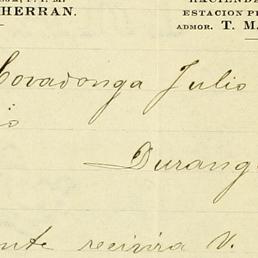 HACIENDA
HERRAN.
ESTACION PE
ADMOR. T. M.
Covadonga Julio
io
Durang
nte recivira V.